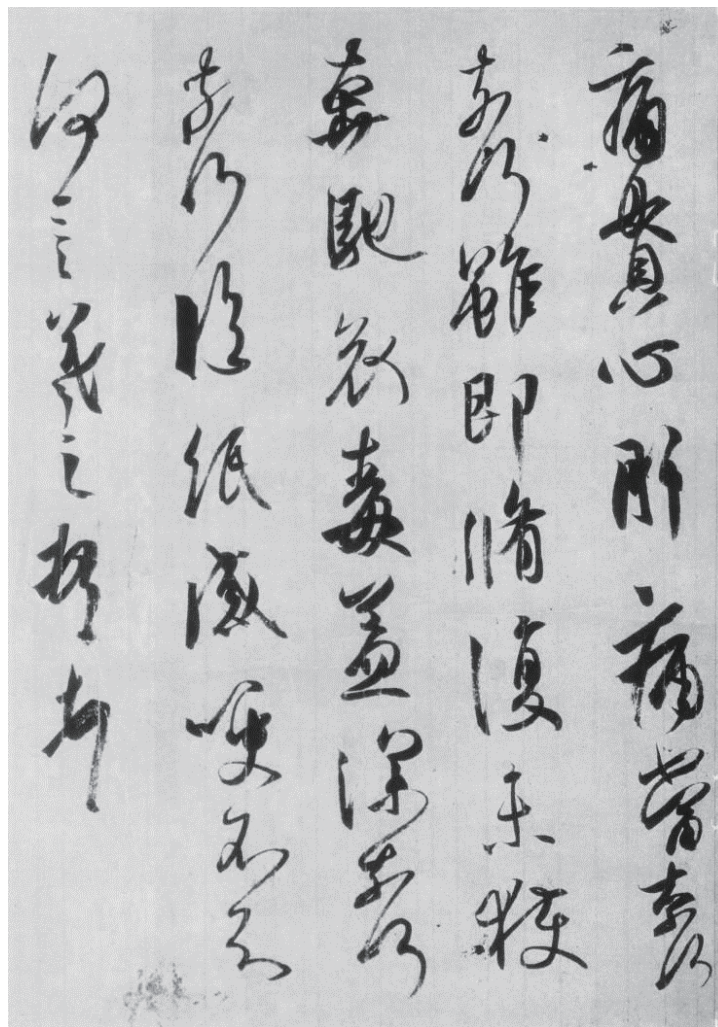 痛貫心肝痛當奈何
奈何雖即脩復未獲
奔馳哀毒益深奈何
奈何臨紙感哽不知
何言羲之頓首頓首